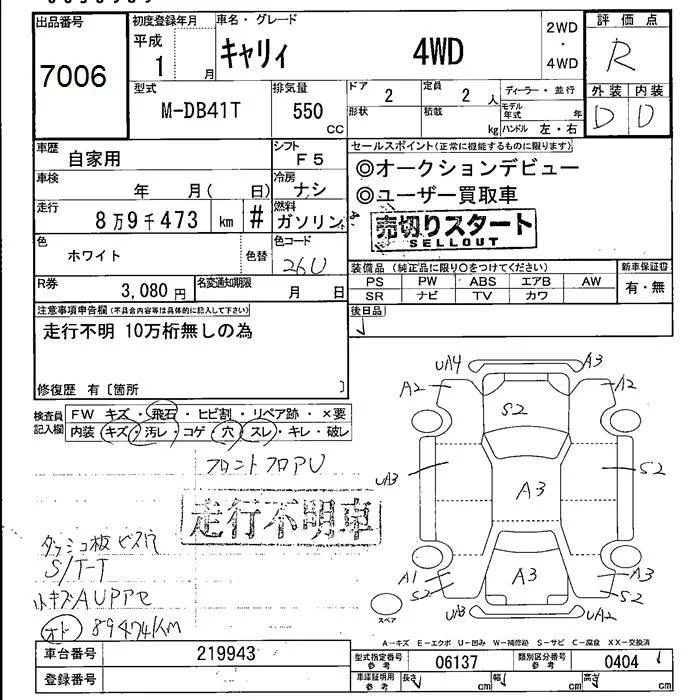 出品番号
7006
初度登録年月
平成
1 月
車名・グレード
キャリィ 4WD
2WD
・
4WD
評価点
R
外装 内装
D D
型式
M-DB41T
排気量
550
cc
ドア
2
定員
2 人
ディーラー・並行
形状
積載
kg
モデル年式 年
ハンドル 左・右
車歴
自家用
シフト
F5
車検
年 月( 日)
冷房
ナシ
走行
8万9千473 km #
燃料
ガソリン
色
ホワイト
色替
色コード
26U
R券
3,080 円
名変通知期限
月 日
セールスポイント(正常に機能するものに限ります)
◎オークションデビュー
◎ユーザー買取車
売切りスタート
SELLOUT
装備品(純正品に限り○をつけてください)
PS PW ABS エアB AW
SR ナビ TV カワ
新車保証書
有・無
後日品
注意事項申告欄(不具合内容等は具体的に記入して下さい)
走行不明 10万桁無しの為
修復歴 有〔箇所 〕
検査員記入欄
FW キズ・飛石・ヒビ割・リペア跡・×要
内装 キズ・汚レ・コゲ・穴・スレ・キレ・破レ
フロントフロアU
走行不明車
S/T-T
小キズAUPPセ
オド 89474KM
UA4 A3
A2 A2
S2
UA3 S2
A3
A3
A1 A3
S2 S2
UA3 UA2
スペア
A-キズ E-エクボ U-凹み W-補修跡 S-サビ C-腐食 XX-交換済
車台番号
219943
登録番号
型式指定番号
参考
06137
類別区分番号
参考
0404
車庫証明用
参考
長さ cm
幅 cm
高さ cm